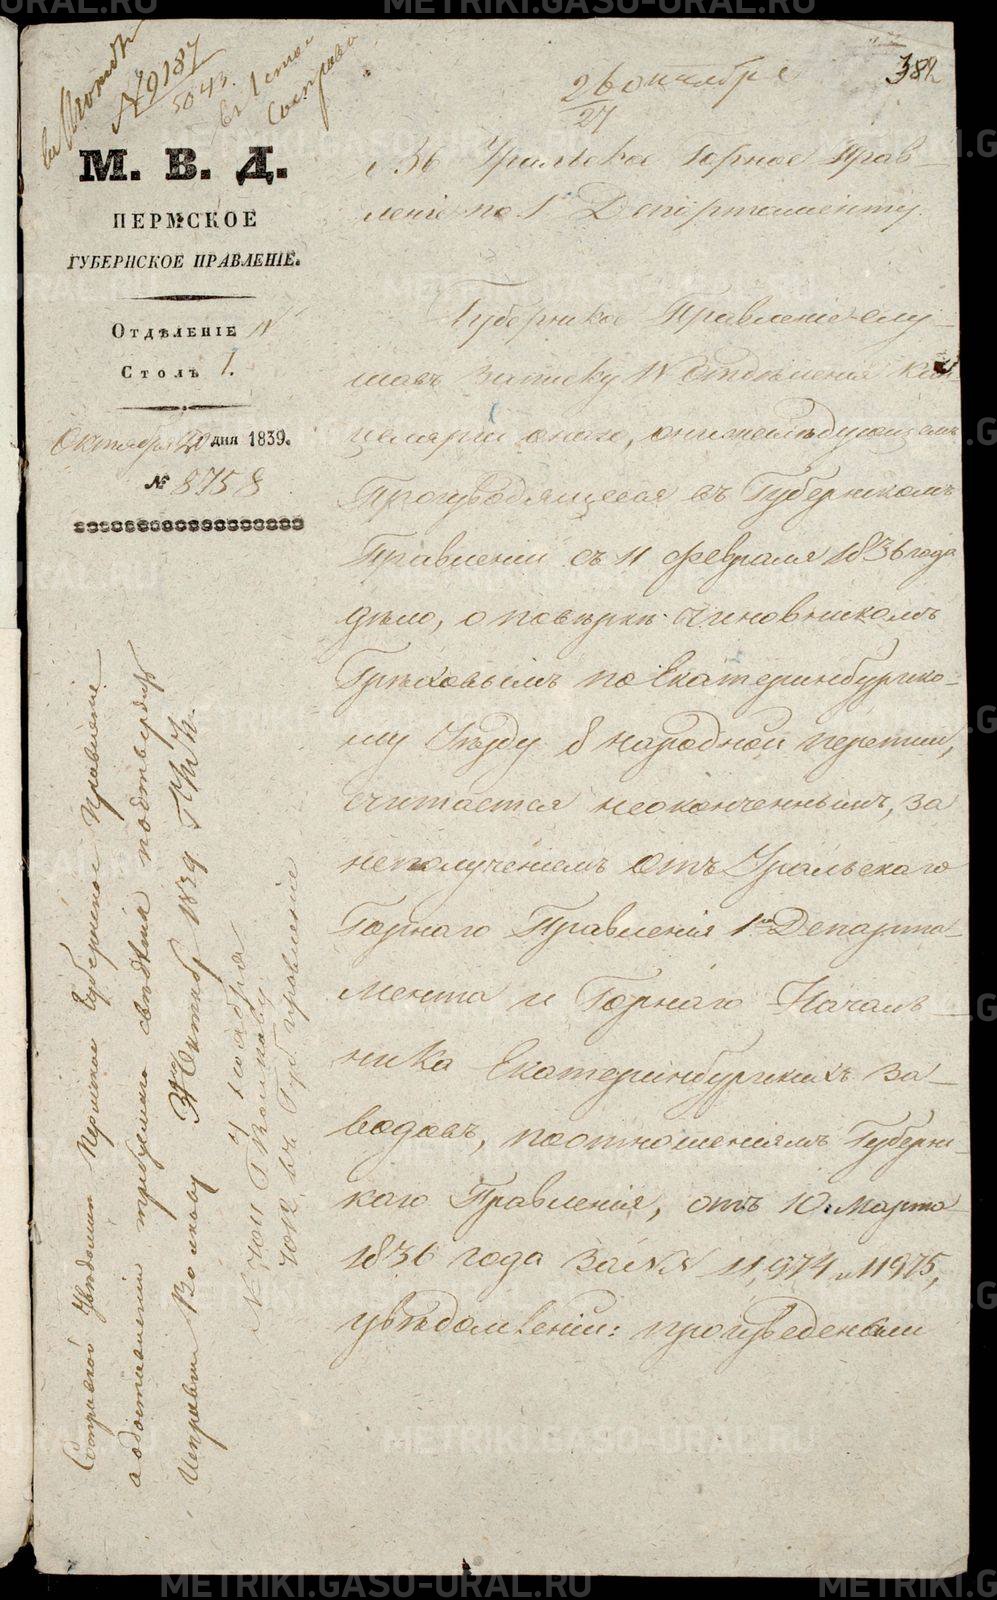 № 9187
5043
въ 1 столъ
26 октября
27
382
М. В. Д.
ПЕРМСКОЕ
ГУБЕРНСКОЕ ПРАВЛЕНІЕ.
ОТДѢЛЕНІЕ IV
СТОЛЪ 1.
Октября 20 дня 1839.
№ 8758
Уральское Горное Прав-
леніе по 1 Департаменту.
Губернское Правленіе слу-
шавъ записку IV Отдѣленія кан-
целяріи онаго, о нижеслѣдующемъ
Производящееся въ Губернскомъ
Правленіи съ 11 февраля 1836 года
дѣло, о повѣркѣ чиновникомъ
Грѣховымъ по Екатеринбургско-
му Уѣзду 8 народной переписи,
считается неоконченнымъ, за
неполученіемъ отъ Уральскаго
Горнаго Правленія 1го Департа-
мента и Горнаго Началь-
ника Екатеринбургскихъ за-
водовъ, по отношеніямъ Губернс-
каго Правленія, отъ 10 Марта
1836 года за №№ 11,974 и 11975,
увѣдомленій: произведены ли
Справкой Увѣдомить Пермское Губернское Правленіе
а о доставленіи требуемаго свѣдѣнія подтвердить
Октября 1839
№ 7011
7012 въ Губ правленіе
METRIKI.GASO-URAL.RU